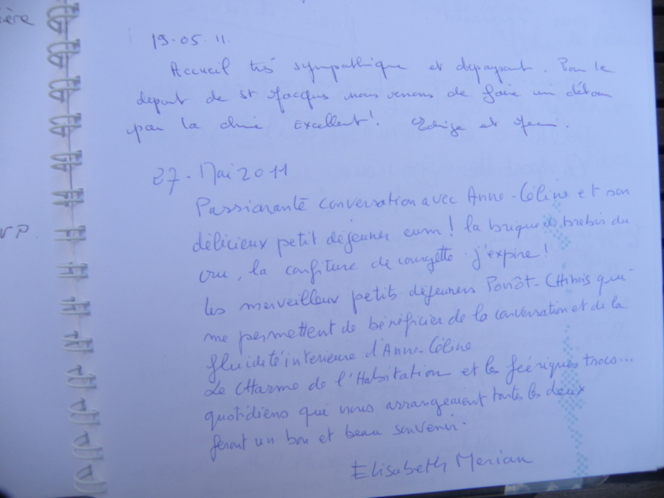 ière
19.05.11.
Accueil très sympathique et dépaysant. Pour le
départ de St Jacques nous venons de faire un détour
par la chine excellent! et
VP
27. Mai 2011
Passionante conversation avec Anne-Céline et son
délicieux petit déjeuner eum! la brique de brebis du
cru, la confiture de courgette j'expire!
les merveilleux petits déjeuners Ponôt-Chinois qui
me permettent de bénéficier de la conversation et de la
fluidité interieure d'Anne-Céline
Le Charme de l'Habitation et les féériques trocs...
quotidiens que nous arrangeaient toutes les deux
feront un bon et beau souvenir.
Elisabeth Merian